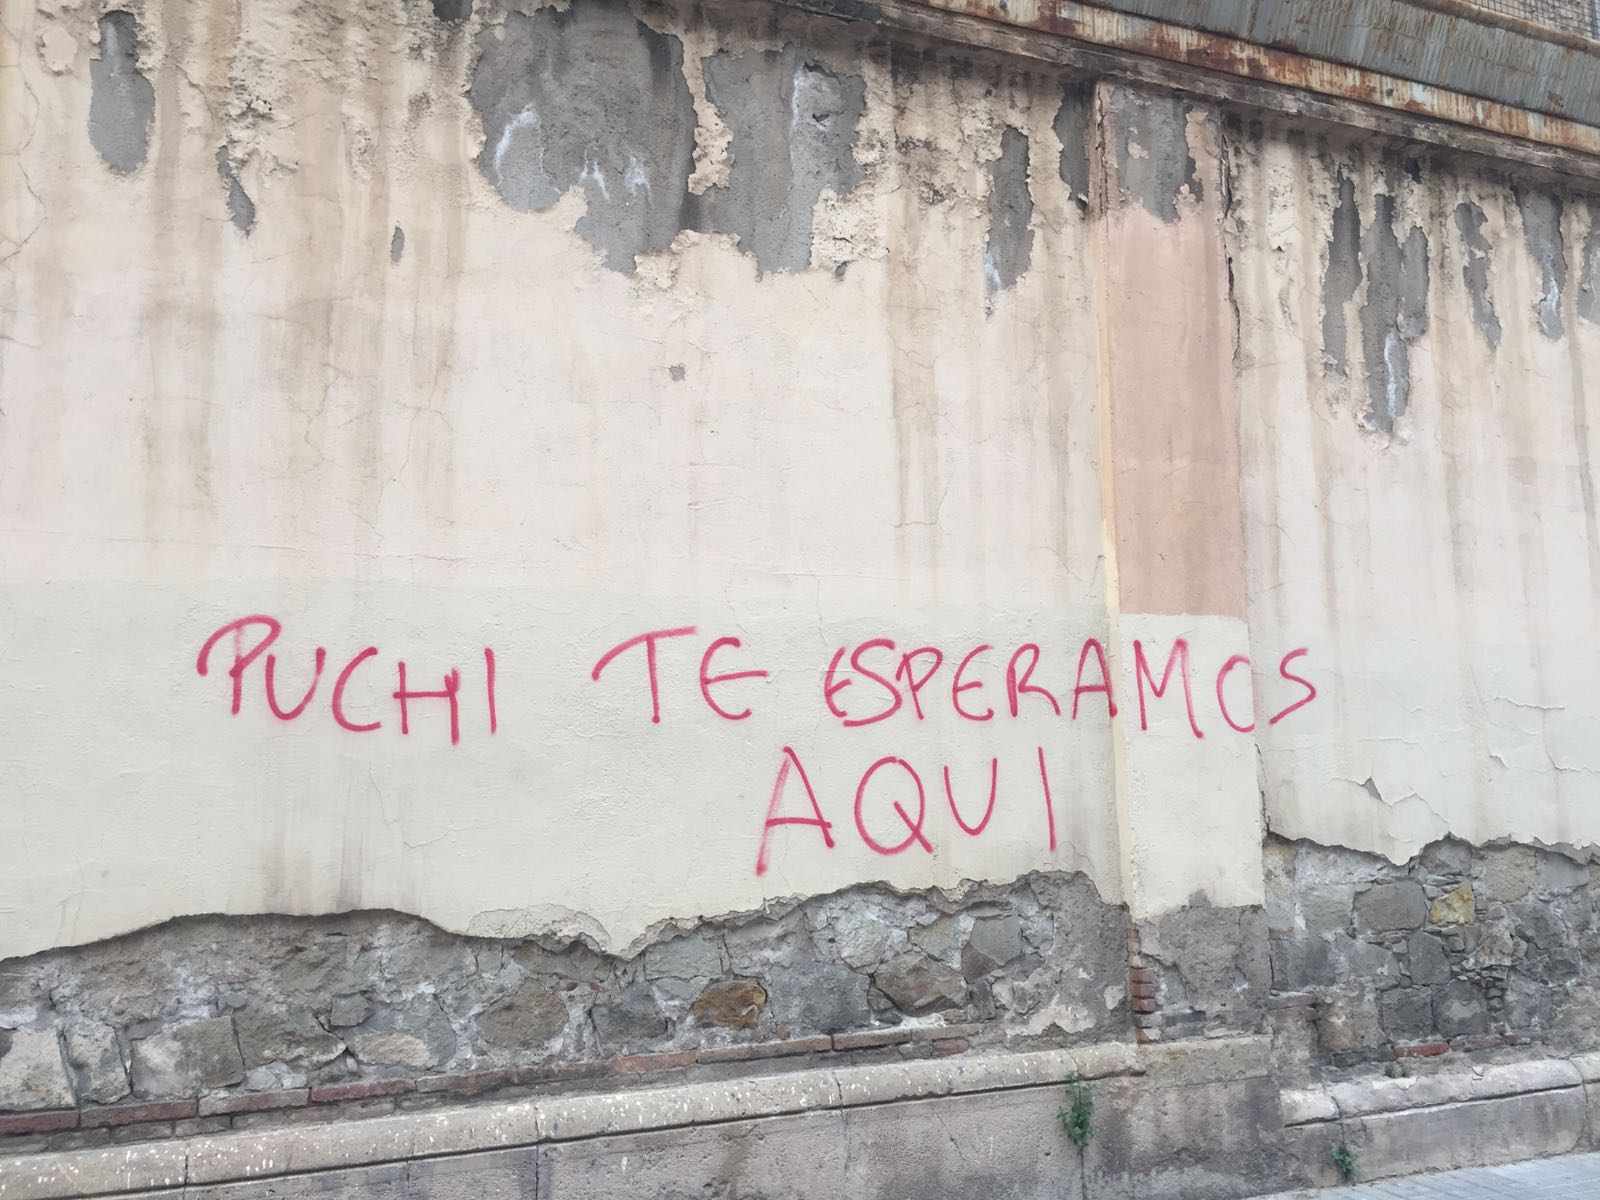 PUCHI TE ESPERAMOS
AQUI